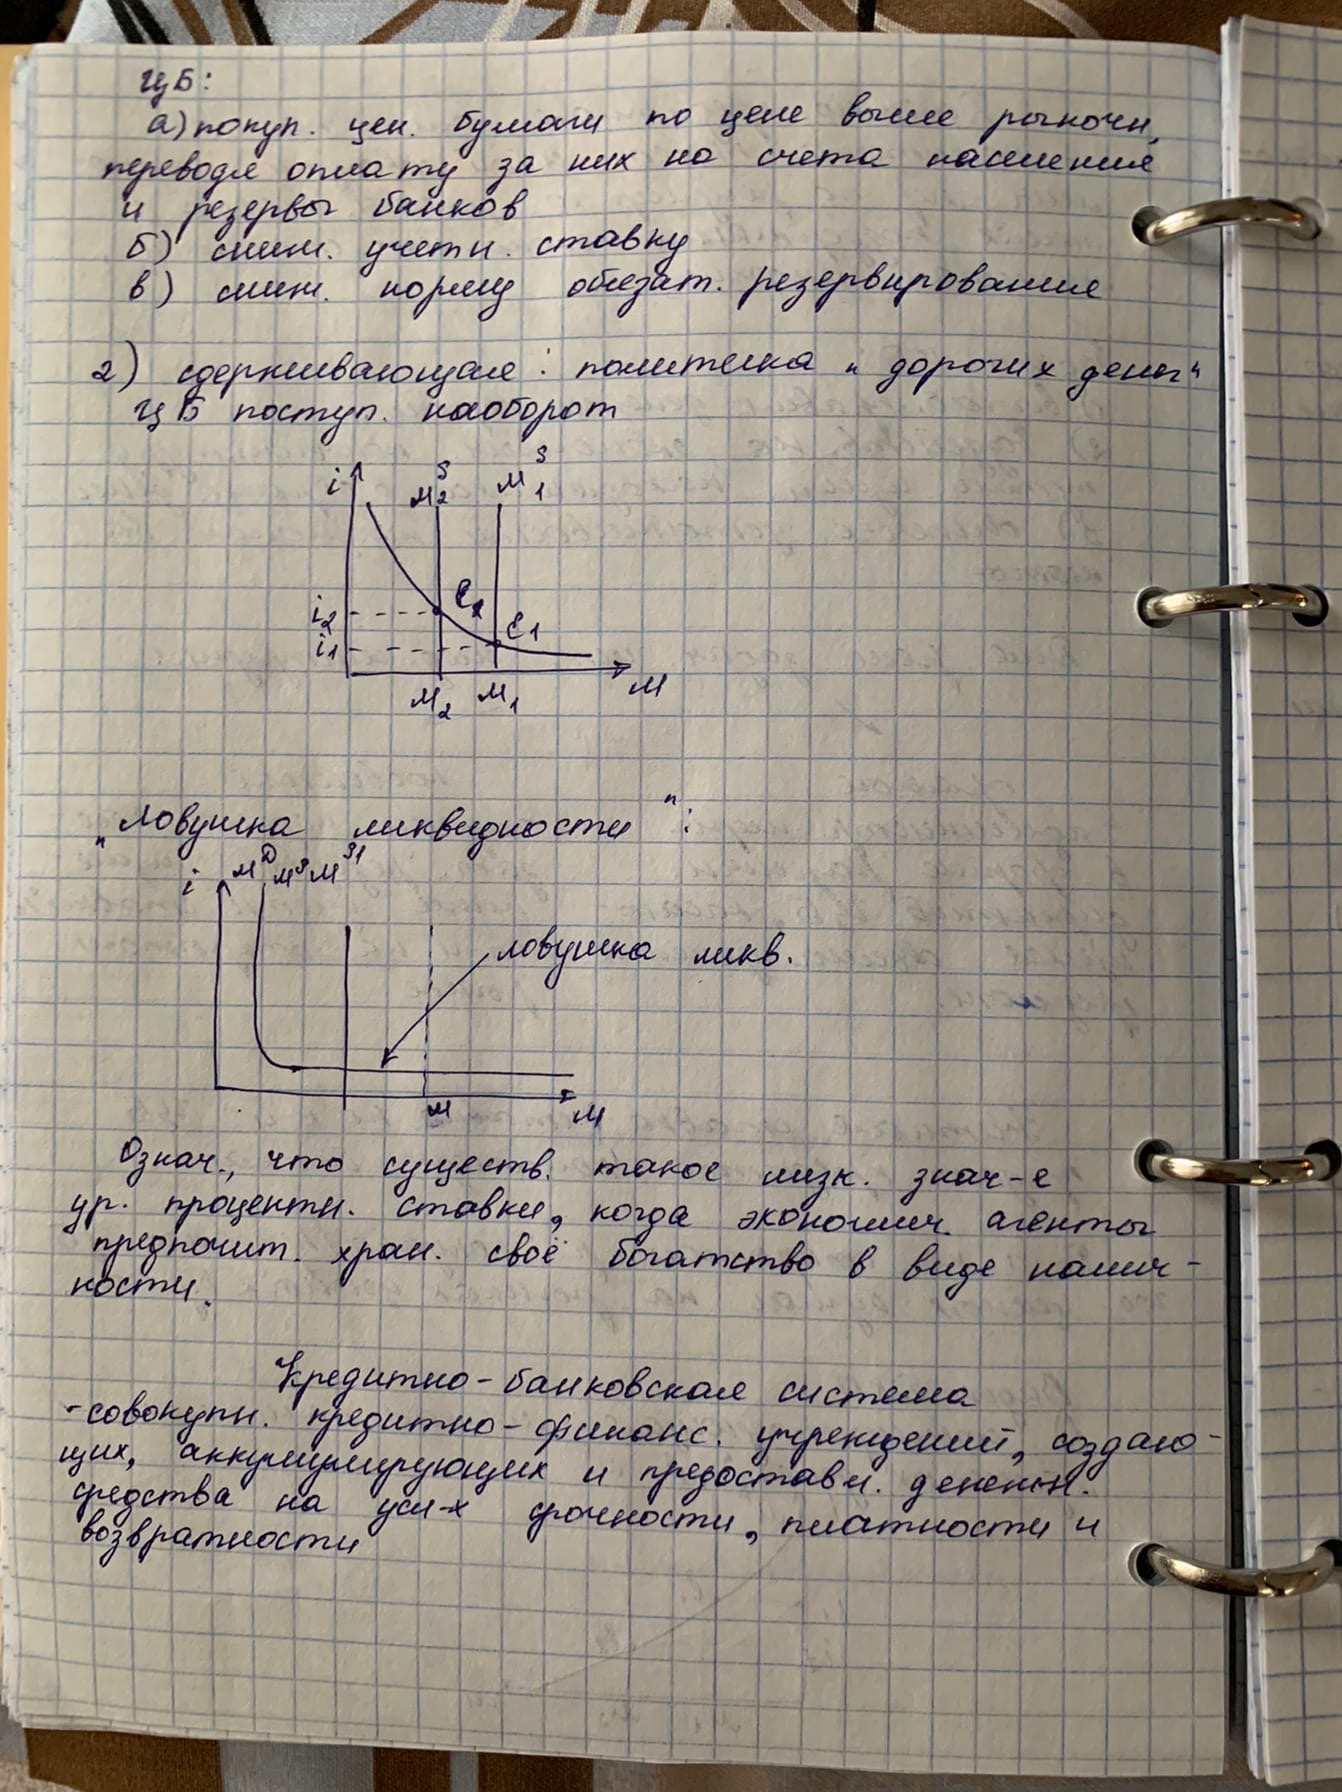 ЦБ:
а) покуп. цен. бумаги по цене выше рыночн,
переводя оплату за них на счета населения
и резервы банков
б) сниж. учетн. ставку
в) сниж. норму обязат. резервирования
2) сдерживающая: политика "дорогих денег"
ЦБ поступ. наоборот
i M2^S M1^S
i2 e2
i1 e1
M2 M1 M
"Ловушка ликвидности":
i M^D M^S M^S1
ловушка ликв.
M M
Означ., что существ. такое низк. знач-е
ур. процентн. ставки, когда экономич. агенты
предпочит. хран. своё богатство в виде налич-
ности.
Кредитно-банковская система
-совокупн. кредитно-финанс. учреждений, создаю-
щих, аккумулирующих и предоставл. денежн.
средства на усл-х срочности, платности и
возвратности